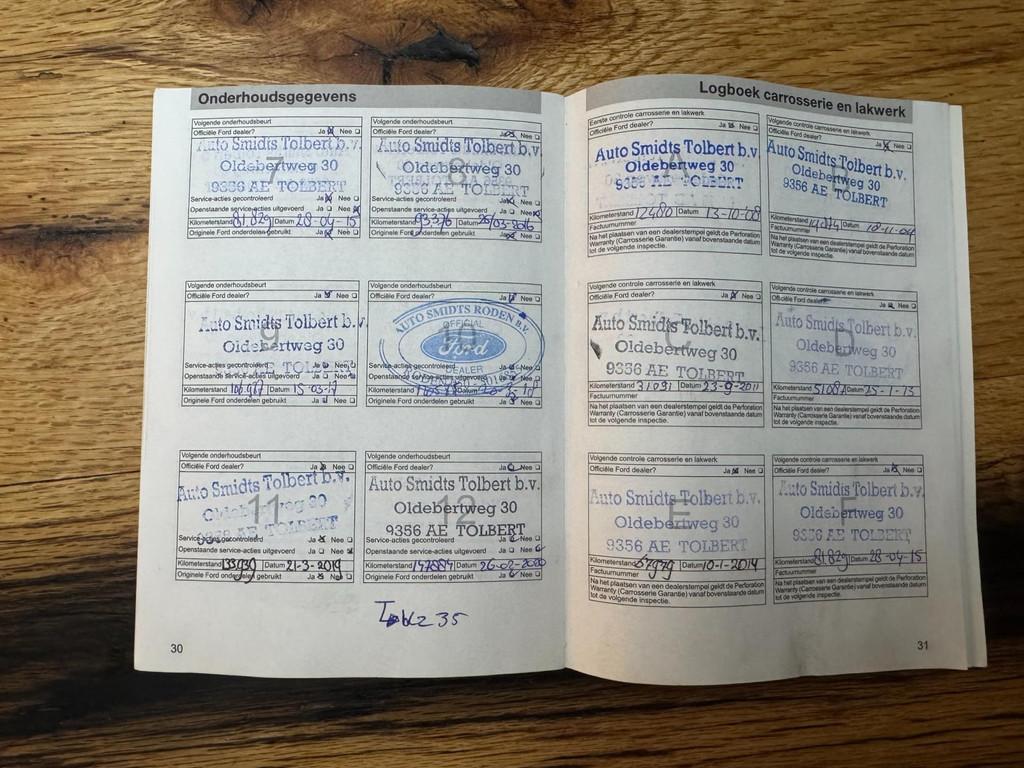 Onderhoudsgegevens
Volgende onderhoudsbeurt
Officiële Ford dealer? Ja Nee
7
Auto Smidts Tolbert b.v.
Oldebertweg 30
9356 AE TOLBERT
Service-acties gecontroleerd Ja Nee
Openstaande service-acties uitgevoerd Ja Nee
Kilometerstand 81.829 Datum 28-04-15
Originele Ford onderdelen gebruikt Ja Nee
Volgende onderhoudsbeurt
Officiële Ford dealer? Ja Nee
8
Auto Smidts Tolbert b.v.
Oldebertweg 30
9356 AE TOLBERT
Service-acties gecontroleerd Ja Nee
Openstaande service-acties uitgevoerd Ja Nee
Kilometerstand 93.376 Datum /03-2016
Originele Ford onderdelen gebruikt Ja Nee
Volgende onderhoudsbeurt
Officiële Ford dealer? Ja Nee
9
Auto Smidts Tolbert b.v.
Oldebertweg 30
9356 AE TOLBERT
Service-acties gecontroleerd Ja Nee
Openstaande service-acties uitgevoerd Ja Nee
Kilometerstand Datum 15-03-17
Originele Ford onderdelen gebruikt Ja Nee
Volgende onderhoudsbeurt
Officiële Ford dealer? Ja Nee
AUTO SMIDTS RODEN B.V.
OFFICIAL
Ford
DEALER
Service-acties gecontroleerd Ja Nee
Openstaande service-acties uitgevoerd Ja Nee
Kilometerstand Datum
Originele Ford onderdelen gebruikt Ja Nee
Volgende onderhoudsbeurt
Officiële Ford dealer? Ja Nee
11
Auto Smidts Tolbert b.v.
Oldebertweg 30
9356 AE TOLBERT
Service-acties gecontroleerd Ja Nee
Openstaande service-acties uitgevoerd Ja Nee
Kilometerstand 133930 Datum 21-3-2019
Originele Ford onderdelen gebruikt Ja Nee
Volgende onderhoudsbeurt
Officiële Ford dealer? Ja Nee
12
Auto Smidts Tolbert b.v.
Oldebertweg 30
9356 AE TOLBERT
Service-acties gecontroleerd Ja Nee
Openstaande service-acties uitgevoerd Ja Nee
Kilometerstand Datum 26-02-2020
Originele Ford onderdelen gebruikt Ja Nee
35
30
Logboek carrosserie en lakwerk
Eerste controle carrosserie en lakwerk
Officiële Ford dealer? Ja Nee
A
Auto Smidts Tolbert b.v.
Oldebertweg 30
9356 AE TOLBERT
Kilometerstand 12480 Datum 13-10-08
Factuurnummer
Na het plaatsen van een dealerstempel geldt de Perforation
Warranty (Carrosserie Garantie) vanaf bovenstaande datum
tot de volgende inspectie.
Volgende controle carrosserie en lakwerk
Officiële Ford dealer? Ja Nee
B
Auto Smidts Tolbert b.v.
Oldebertweg 30
9356 AE TOLBERT
Kilometerstand Datum 18-11-09
Factuurnummer
Na het plaatsen van een dealerstempel geldt de Perforation
Warranty (Carrosserie Garantie) vanaf bovenstaande datum
tot de volgende inspectie.
Volgende controle carrosserie en lakwerk
Officiële Ford dealer? Ja Nee
C
Auto Smidts Tolbert b.v.
Oldebertweg 30
9356 AE TOLBERT
Kilometerstand 31.091 Datum 23-9-2011
Factuurnummer
Na het plaatsen van een dealerstempel geldt de Perforation
Warranty (Carrosserie Garantie) vanaf bovenstaande datum
tot de volgende inspectie.
Volgende controle carrosserie en lakwerk
Officiële Ford dealer? Ja Nee
D
Auto Smidts Tolbert b.v.
Oldebertweg 30
9356 AE TOLBERT
Kilometerstand Datum
Factuurnummer
Na het plaatsen van een dealerstempel geldt de Perforation
Warranty (Carrosserie Garantie) vanaf bovenstaande datum
tot de volgende inspectie.
Volgende controle carrosserie en lakwerk
Officiële Ford dealer? Ja Nee
E
Auto Smidts Tolbert b.v.
Oldebertweg 30
9356 AE TOLBERT
Kilometerstand Datum 10-1-2014
Factuurnummer
Na het plaatsen van een dealerstempel geldt de Perforation
Warranty (Carrosserie Garantie) vanaf bovenstaande datum
tot de volgende inspectie.
Volgende controle carrosserie en lakwerk
Officiële Ford dealer? Ja Nee
F
Auto Smidts Tolbert b.v.
Oldebertweg 30
9356 AE TOLBERT
Kilometerstand 81.829 Datum 28-04-15
Factuurnummer
Na het plaatsen van een dealerstempel geldt de Perforation
Warranty (Carrosserie Garantie) vanaf bovenstaande datum
tot de volgende inspectie.
31